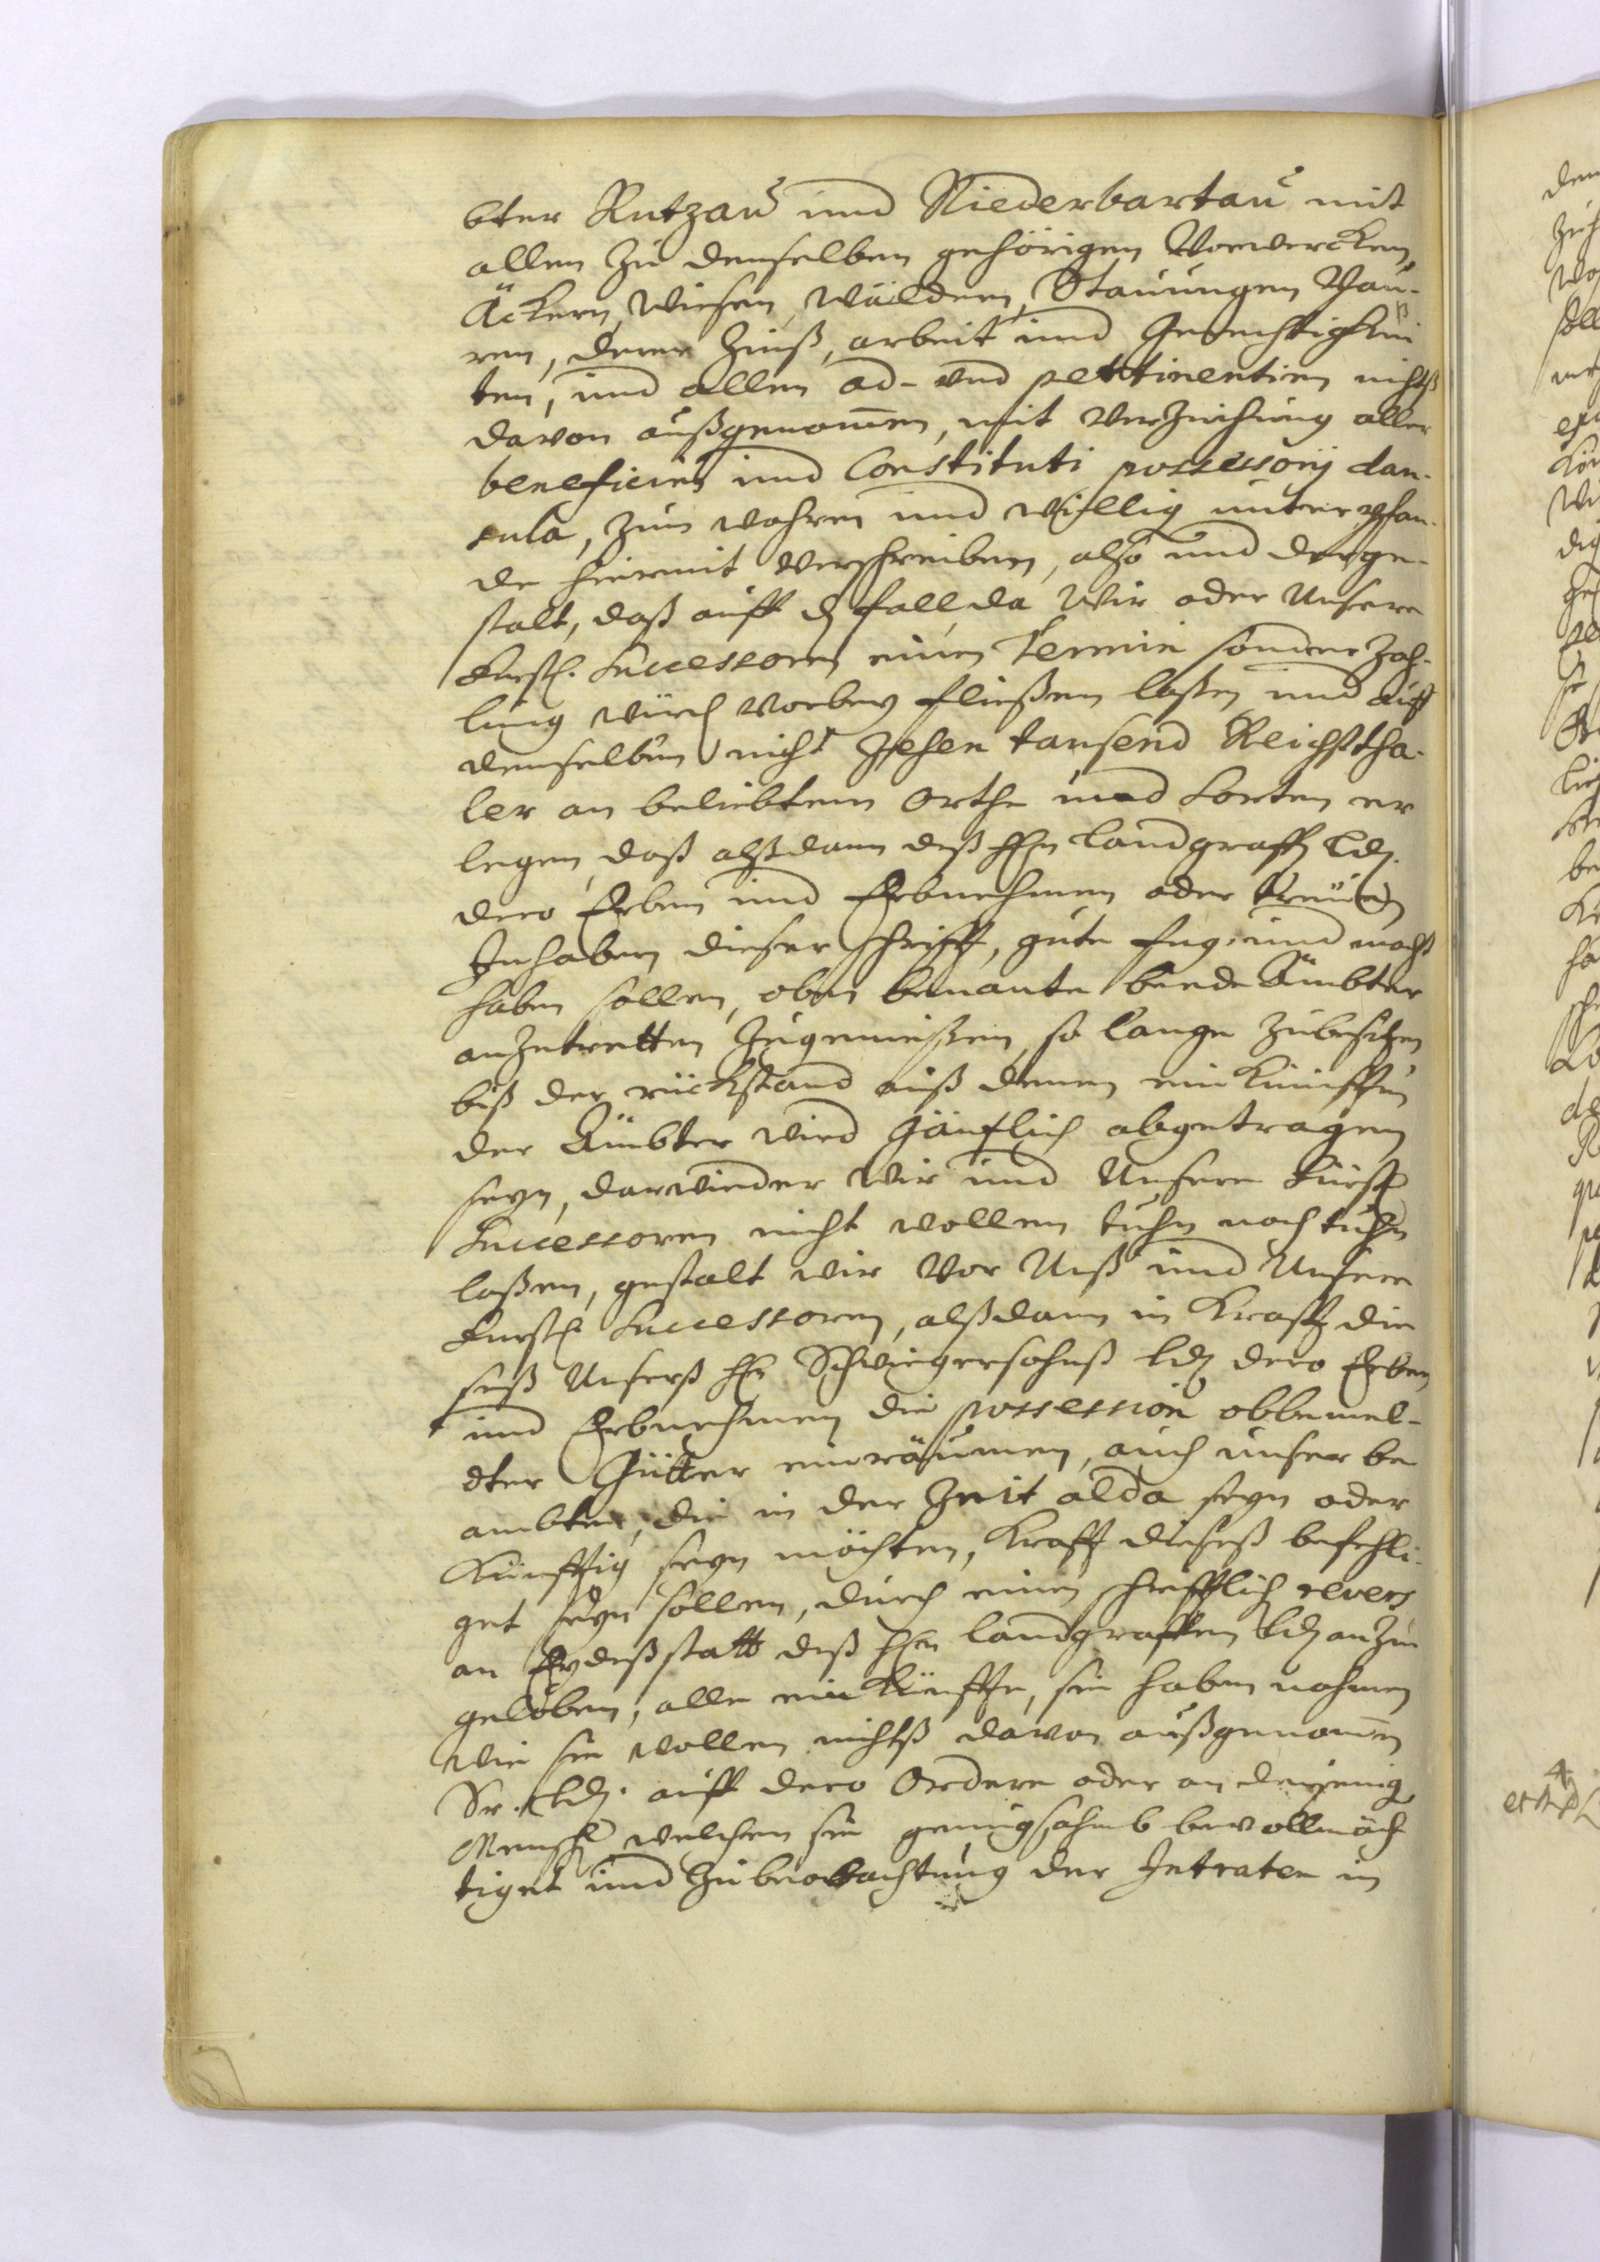 bter Rutzaŭ und Niederbartaŭ mit
allen zu denselben gehörigen Vorwercken,
Äckern, Wiesen, Wäldern, Stauungen Bau-
ren, deren Zinß, arbeit und Gerechtigkei
ten, und allen ad- und pertinentien nichtß
davon außgenom̄en, mit Verzeihung aller
beneficien und Constituti possessorij clau-
sula, zum wahren und willig unterpfan-
de hiermit verschreiben, also und derge-
stalt, daß auff den fall da Wir oder Unsere
Fürstl. Successoren einen Termin sonder Zah-
lung würckl vorbey fließen laßen und auff
demselben nicht Zehen tausend Reichstha-
ler an beliebtem Orthe und Sorten er
legen, daß alßdann deß Hhn Landgraffen Lden.
dero Erben und Erbnehmen oder treuen
Inhabern dieser schrifft, gute fug und macht
haben sollen, oben benante beede Ämbter
anzutretten zugenießen, so lange zubesitzen
biß der rückstand auß denen einkünfften
der Ämbter wird gäntzlich abgetragen
seyn, darwieder Wir und Unsere Fürstl
Successoren nicht wollen tuhn noch tuhn
laßen, gestalt wir Vor Unß und Unsere
Fürstl. Successoren, alßdann in Krafft die
seß Unserß Hhn Schwiegersohnß Lden dero Erben
und Erbnehmen die possession obbemel-
dter Gütter einräumen, auch unser be
ambten, die in der Zeit alda seyn oder
Künfftig seyn möchten, Krafft dieseß befehli-
get seyn sollen, durch einen schrifftlich revers
an Eydeßstatt deß Hhn Landgraffen Lden anzu
geloben, alle einkünffte, sie haben nahmen
wie sie wollen nichtß davon außgenom̄en
Sr. Lden. auff dero Ordere oder an derjenig
Mensch welchen sie genungsahmb bevollmäch
tiget und zubeobachtung der Intraten in